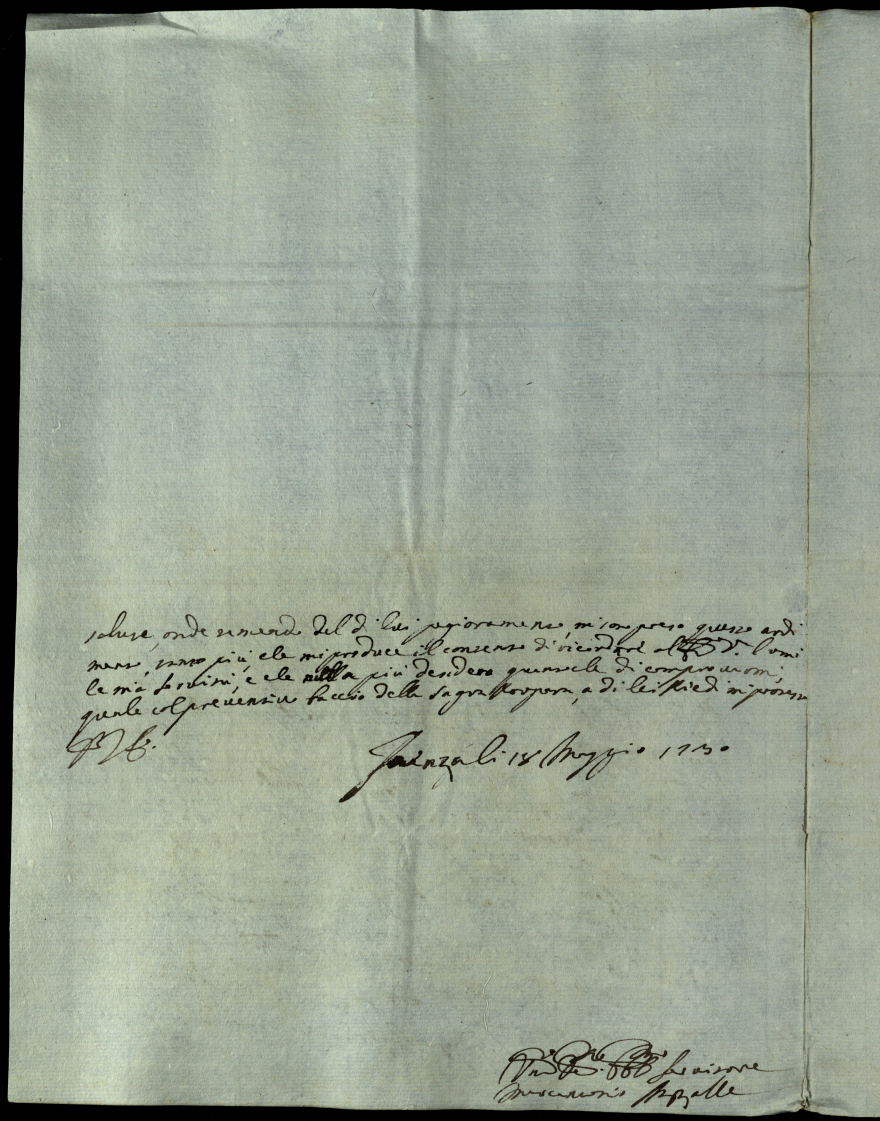 salute, onde temendo del di lui pegioramento, mi son preso questo ardi
mento, tanto più, che mi produce il contento di ricordare al V. E. l'umi
le mia servitù, e che nulla più desidero quanto che di comprovarmi,
quale col preventivo baccio della Sagra Porpora, a di lei Piedi mi protesto
Faenza li 18 Maggio 1730
Servitore